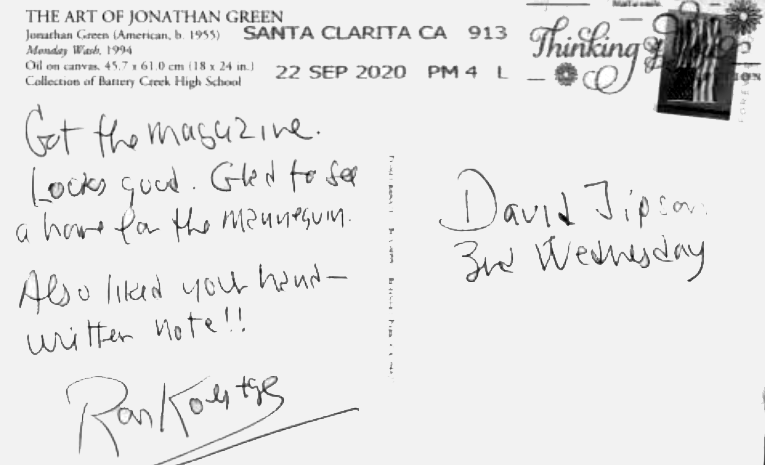 THE ART OF JONATHAN GREEN
Jonathan Green (American, b. 1955)
Monday Wash, 1994
Oil on canvas, 45.7 x 61.0 cm (18 x 24 in.)
Collection of Battery Creek High School
SANTA CLARITA CA 913
22 SEP 2020 PM 4 L
Thinking of You
FOREVER
Got the magazine.
Looks good. Glad to see
a home for the mannequin.
Also liked your hand-
written note!!
Ron Koertge
David Jipson
3rd Wednesday